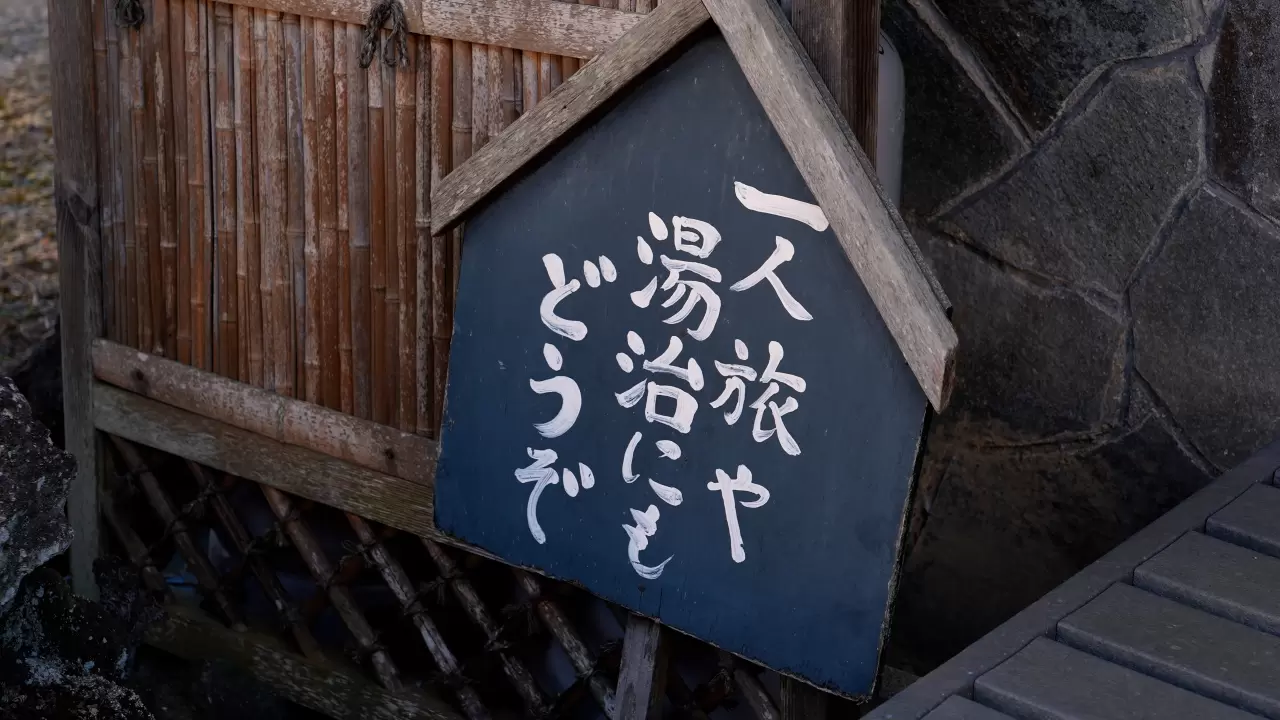 一人旅や
湯治にも
どうぞ